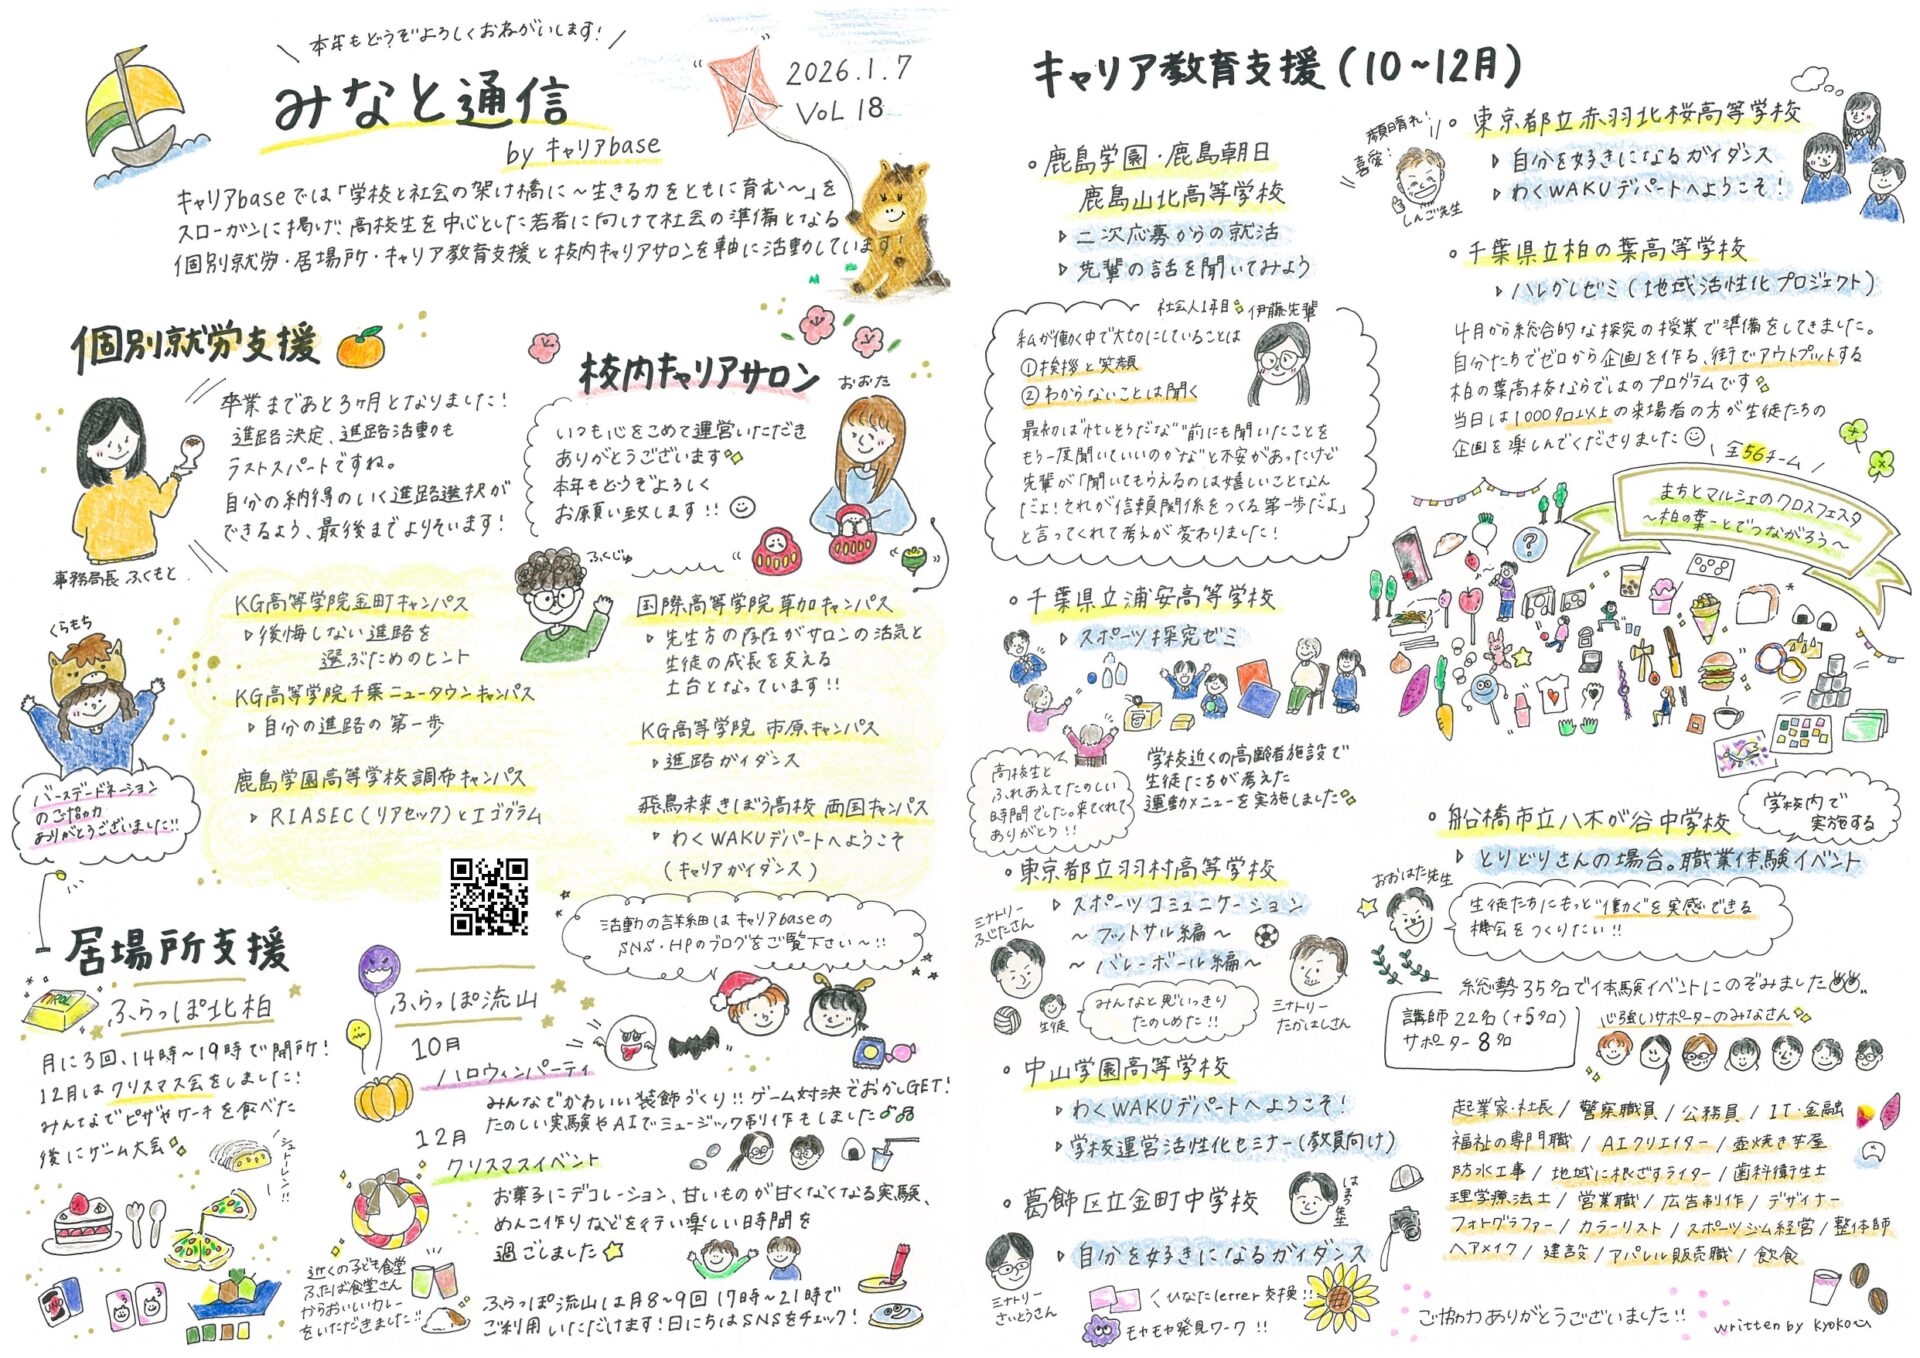 本年もどうぞよろしくおねがいします!
みなと通信
by キャリアbase
2026.1.7
VoL 18
キャリアbaseでは「学校と社会の架け橋に〜生きる力をともに育む〜」を
スローガンに掲げ、高校生を中心とした若者に向けて社会の準備となる
個別就労・居場所・キャリア教育支援と校内キャリアサロンを軸に活動しています!
個別就労支援
卒業まであと3ヶ月となりました!
進路決定、進路活動も
ラストスパートですね。
自分の納得のいく進路選択が
できるよう、最後までよりそいます!
事務局長 ふくもと
校内キャリアサロン
おおた
いつも心をこめて運営いただき
ありがとうございます
本年もどうぞよろしく
お願い致します!!
ふくじゅ
くらもち
バースデードネーション
のご協力
ありがとうございました!!
KG高等学院金町キャンパス
後悔しない進路を
選ぶためのヒント
KG高等学院千葉ニュータウンキャンパス
自分の進路の第一歩
鹿島学園高等学校調布キャンパス
RIASEC(リアセック)とエゴグラム
国際高等学院草加キャンパス
先生方の存在がサロンの活気と
生徒の成長を支える
土台となっています!!
KG高等学院 市原キャンパス
進路ガイダンス
飛鳥未来きぼう高校 両国キャンパス
わくWAKUデパートへようこそ
(キャリアガイダンス)
活動の詳細はキャリアbaseの
SNS・HPのブログをご覧下さい〜!!
居場所支援
ふらっぽ北柏
月に3回、14時〜19時で開所!
12月はクリスマス会をしました!
みんなでピザやケーキを食べた
後にゲーム大会
シュトーレン!!
UNO
ふらっぽ流山
10月
ハロウィンパーティ
みんなでかわいい装飾づくり!!ゲーム対決でおかしGET!
たのしい実験やAIでミュージック制作もしました
12月
クリスマスイベント
お菓子にデコレーション、甘いものが甘くなくなる実験、
めんこ作りなどを行い楽しい時間を
過ごしました
近くの子ども食堂
ふたば食堂さん
からおいしいカレー
をいただきました!!
ふらっぽ流山は月8〜9回 17時〜21時で
ご利用いただけます!日にちはSNSをチェック!
キャリア教育支援(10〜12月)
鹿島学園・鹿島朝日
鹿島山北高等学校
二次応募からの就活
先輩の話を聞いてみよう
社会人1年目 伊藤先輩
私が働く中で大切にしていることは
①挨拶と笑顔
②わからないことは聞く
最初は"忙しそうだな""前にも聞いたことを
もう一度聞いていいのかな"と不安があったけど
先輩が「聞いてもらえるのは嬉しいことなん
だよ!それが信頼関係をつくる第一歩だよ」
と言ってくれて考えが変わりました!
千葉県立浦安高等学校
スポーツ探究ゼミ
高校生と
ふれあえてたのしい
時間でした。来てくれて
ありがとう!!
学校近くの高齢者施設で
生徒たちが考えた
運動メニューを実施しました
東京都立羽村高等学校
スポーツコミュニケーション
〜フットサル編〜
〜バレーボール編〜
ミナトリー
ふじたさん
生徒
みんなと思いっきり
たのしめた!!
ミナトリー
たかはしさん
中山学園高等学校
わくWAKUデパートへようこそ!
学校運営活性化セミナー(教員向け)
葛飾区立金町中学校
自分を好きになるガイダンス
はまう先生
ミナトリー
さいとうさん
くひなたletter交換!!
モヤモヤ発見ワーク!!
東京都立赤羽北桜高等学校
自分を好きになるガイダンス
わくWAKUデパートへようこそ!
素晴れ!
喜愛!
しんご先生
千葉県立柏の葉高等学校
ハレかしゼミ(地域活性化プロジェクト)
4月から総合的な探究の授業で準備をしてきました。
自分たちでゼロから企画を作る、街でアウトプットする
柏の葉高校ならではのプログラムです
当日は1000名以上の来場者の方が生徒たちの
企画を楽しんでくださりました
全56チーム
まちとマルシェのクロスフェスタ
〜柏の葉一とでつながろう〜
船橋市立八木が谷中学校
学校内で
実施する
とりどりさんの場合。職業体験イベント
おおはた先生
生徒たちにもっと"働く"を実感できる
機会をつくりたい!!
総勢35名で体験イベントにのぞみました
講師22名(+5名)
サポーター8名
心強いサポーターのみなさん
起業家・社長/警察職員/公務員/IT・金融
福祉の専門職/AIクリエイター/壺焼き芋屋
防水工事/地域に根ざすライター/歯科衛生士
理学療法士/営業職/広告制作/デザイナー
フォトグラファー/カラーリスト/スポーツジム経営/整体師
ヘアメイク/建設/アパレル販売職/飲食
ご協力ありがとうございました!!
written by kyoko